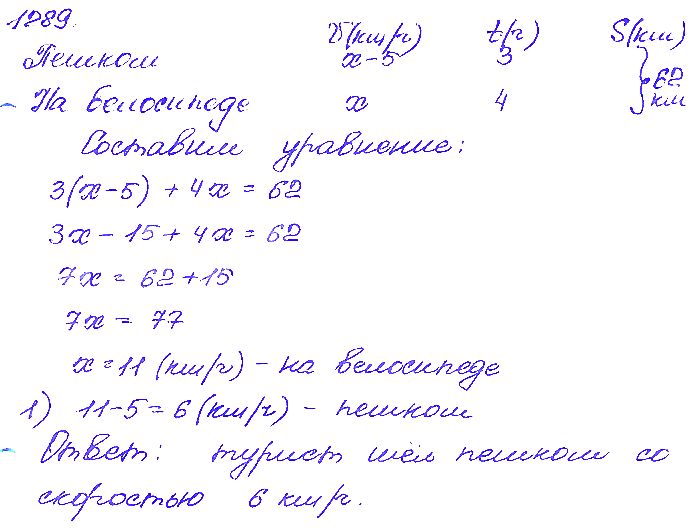 1289.
V(км/ч) t(ч) S(км)
Пешком x-5 3
На велосипеде x 4 } 62 км
Составим уравнение:
3(x-5) + 4x = 62
3x - 15 + 4x = 62
7x = 62 + 15
7x = 77
x = 11 (км/ч) - на велосипеде
1) 11-5 = 6 (км/ч) - пешком
Ответ: турист шёл пешком со
скоростью 6 км/ч.